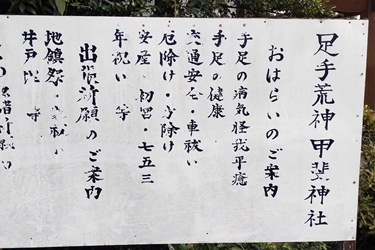 足手荒神 甲斐神社
おはらいのご案内
手足の病気怪我平癒
手足の健康
交通安全・車祓い
厄除け・方除け
安産・初宮・七五三
年祝い 等
出張祈願のご案内
地鎮祭・
井戸 等